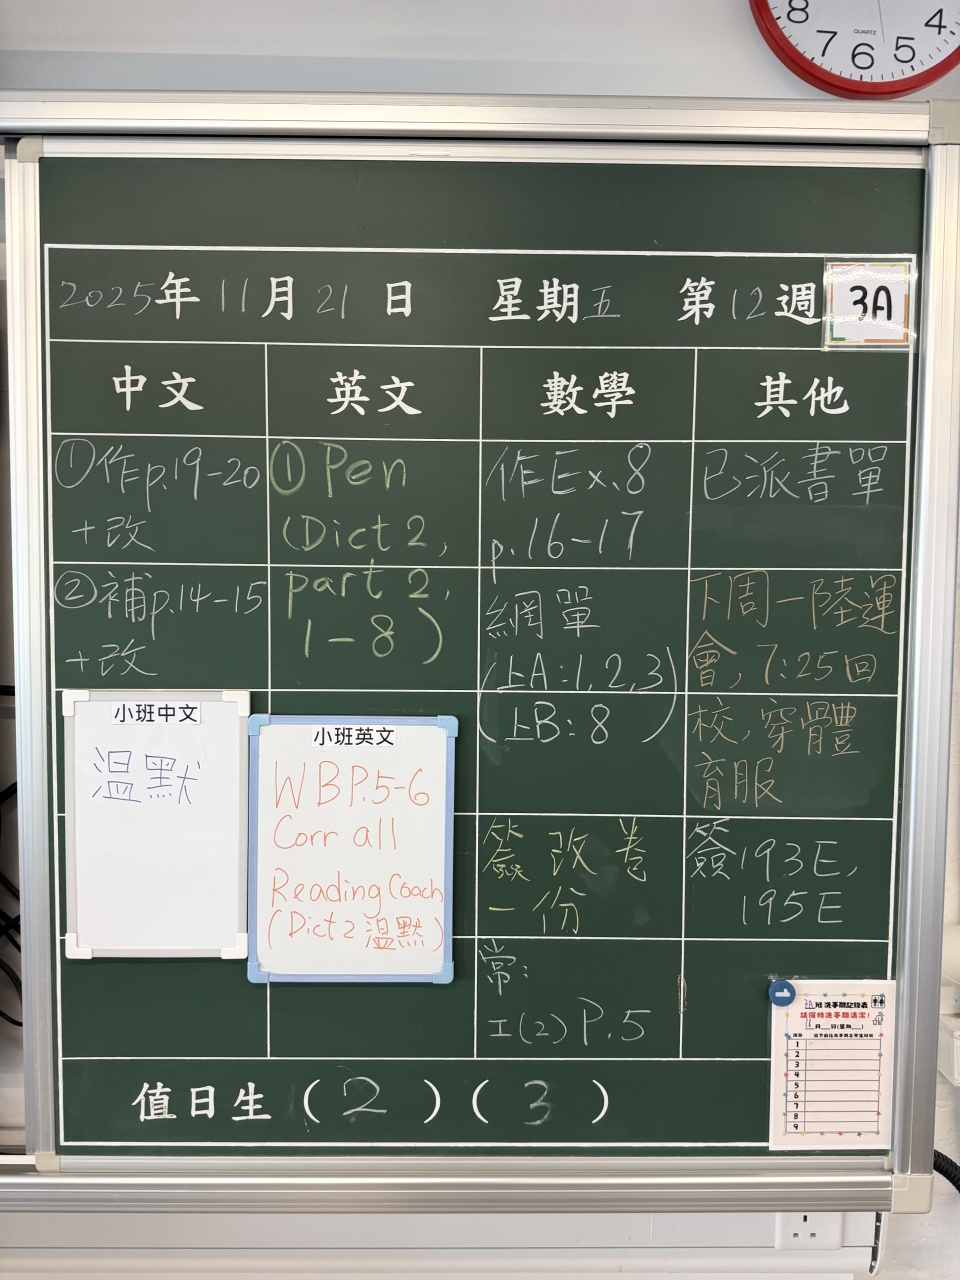 8 7 6 5 4
QUARTZ
2025年11月21日 星期五 第12週 3A
中文 英文 數學 其他
①作p.19-20
+改
②補p.14-15
+改
小班中文
溫默
①Pen
(Dict 2,
part 2,
1-8)
小班英文
WBP.5-6
Corr all
Reading Coach
(Dict 2 溫默)
作Ex.8
p.16-17
網單
(上A:1,2,3)
(上B:8)
簽改卷
一份
常:
工(2)P.5
已派書單
下周一陸運
會,7:25回
校,穿體
育服
簽193E,
195E
3A班洗手間記錄表
請保持洗手間清潔!
11月 日(星期 )
1
2
3
4
5
6
7
8
9
值日生(2)(3)